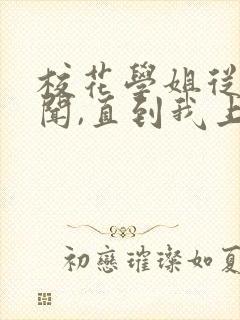 校花學姐從
聞,直到我上
初戀璀璨如夏